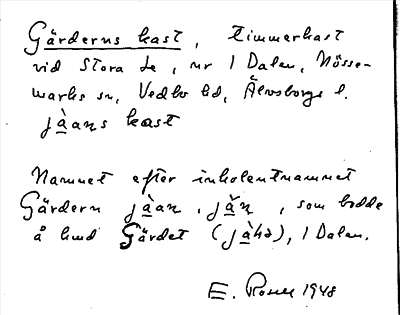 Gärderns kast, timmerkast
vid Stora Le, nr 1 Dalen, Nösse-
marks sn, Vedbo hd, Älvsborgs l.
jà̱ans kast
Namnet efter inholentnamnet
Gärdern jà̱an, jä̱̀n, som bodde
å hmd Gärdet (jà̱hə), 1 Dalen.
E. Rosell 1948